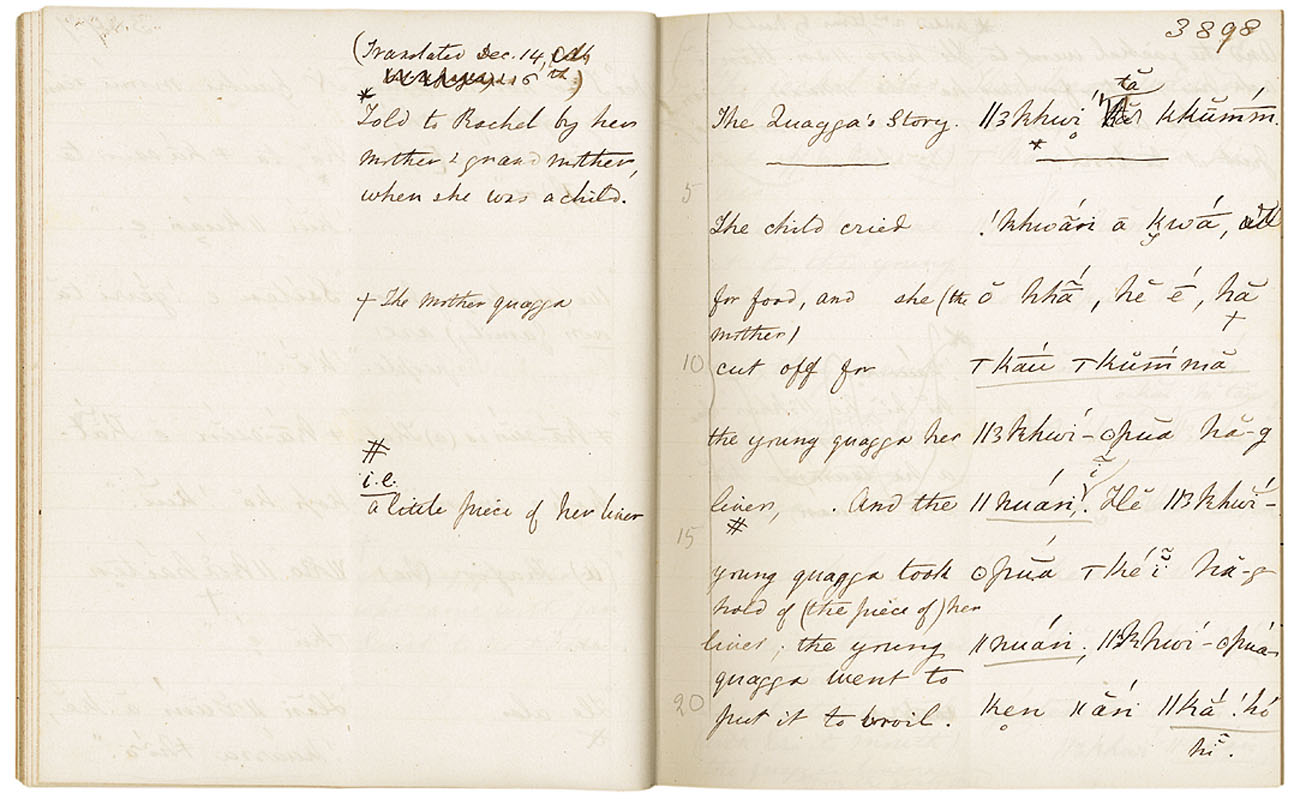 (Translated Dec. 14,
16th)
*
Told to Rachel by her
mother & grandmother,
when she was a child.
+ The mother quagga
#
i.e.
a little piece of her liver
3898
tă
The Quagga's Story. ||ɜkhwí kkŭmḿ.
*
5
The child cried !khwā́ri ā k̬wā́,
for food, and she (the ŏ hhā́, hĕ é, hă
mother) +
10 cut off for ⊤kāú ⊤kŭmḿmă
the young quagga her ||ɜkhwí-ʘpŭă hă-g
liver, . And the ||nuári,. Hĕ ||ɜkhwí-
#
15
young quagga took ʘpŭá ⊤ké ĭ hă-g
hold of (the piece of) her
liver; the young ||nuári; ||ɜkhwí-ʘpúa-
quagga went to
20 put it to broil. kẹn ||ā́ri ||kā́ !hó
hĭ̃.